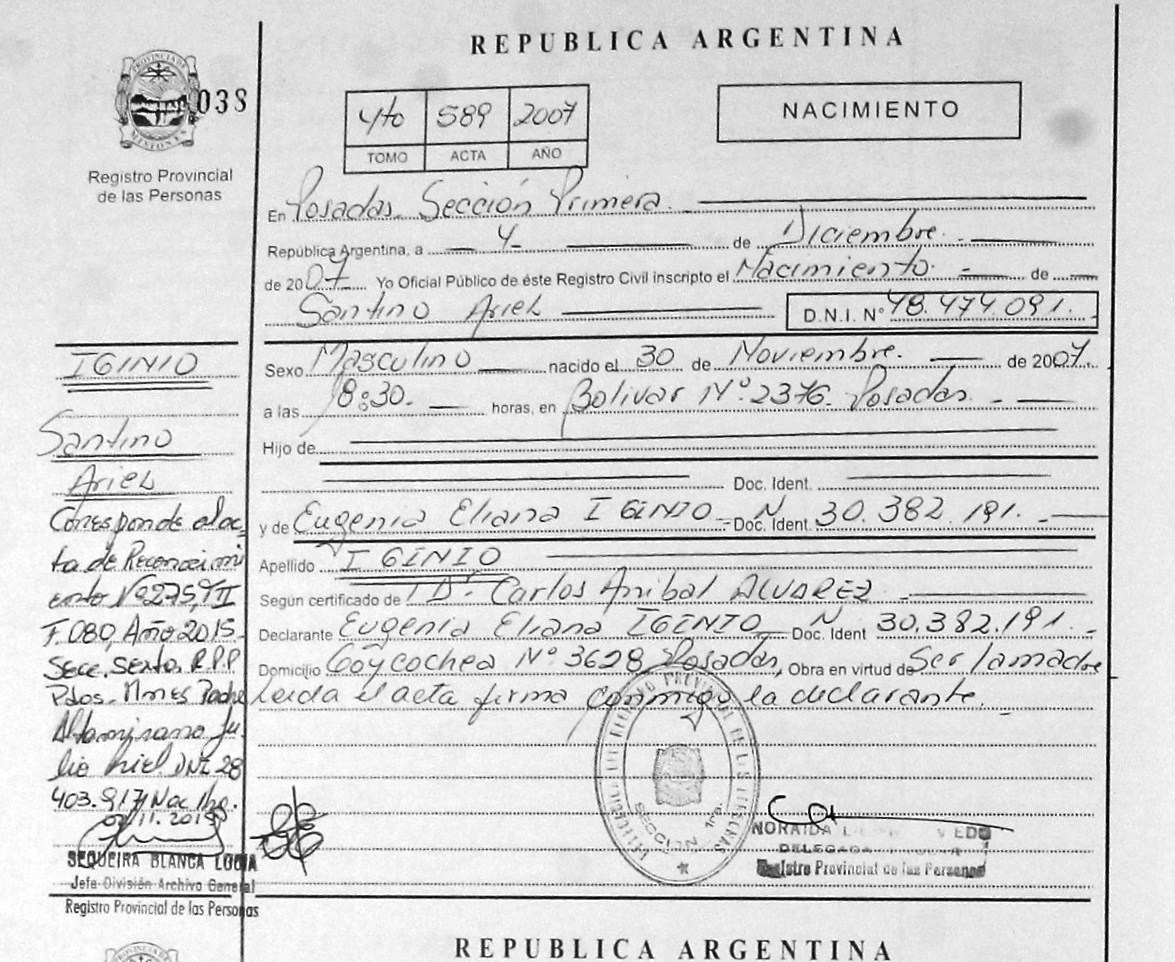 REPUBLICA ARGENTINA
PROVINCIA DE
MISIONES
038
Registro Provincial
de las Personas
4to 589 2007
TOMO ACTA AÑO
NACIMIENTO
En Posadas Sección Primera
República Argentina, a 4 de Diciembre
de 2007 Yo Oficial Público de éste Registro Civil inscripto el Nacimiento de
Santino Ariel D.N.I. N° 48.474.091.
Sexo Masculino nacido el 30 de Noviembre. de 2007.
a las 8:30. horas, en Bolivar N° 2376 Posadas
Hijo de
Doc. Ident.
y de Eugenia Eliana IGINIO N Doc. Ident. 30.382.191.
Apellido IGINIO
Según certificado de Dr. Carlos Anibal ALVAREZ
Declarante Eugenia Eliana IGINIO N Doc. Ident 30.382.191.
Domicilio Goycochea N° 3628 Posadas, Obra en virtud de Ser la madre
Leida el acta firma conmigo la declarante.
IGINIO
Santino
Ariel
Corresponde al ac
ta de Reconocimi
ento N° 275, T II
F. 080, Año 2015
Secc. Sexta. R.P.P
Pdas. Mnes Padre
Altamirano Ju
lio DNI 28
403.917
02/11.2015
SEQUEIRA BLANCA LUCIA
Jefe División Archivo General
Registro Provincial de las Personas
SECCION 1ra.
NORAIDA
DELEGADA
Registro Provincial de las Personas
REPUBLICA ARGENTINA